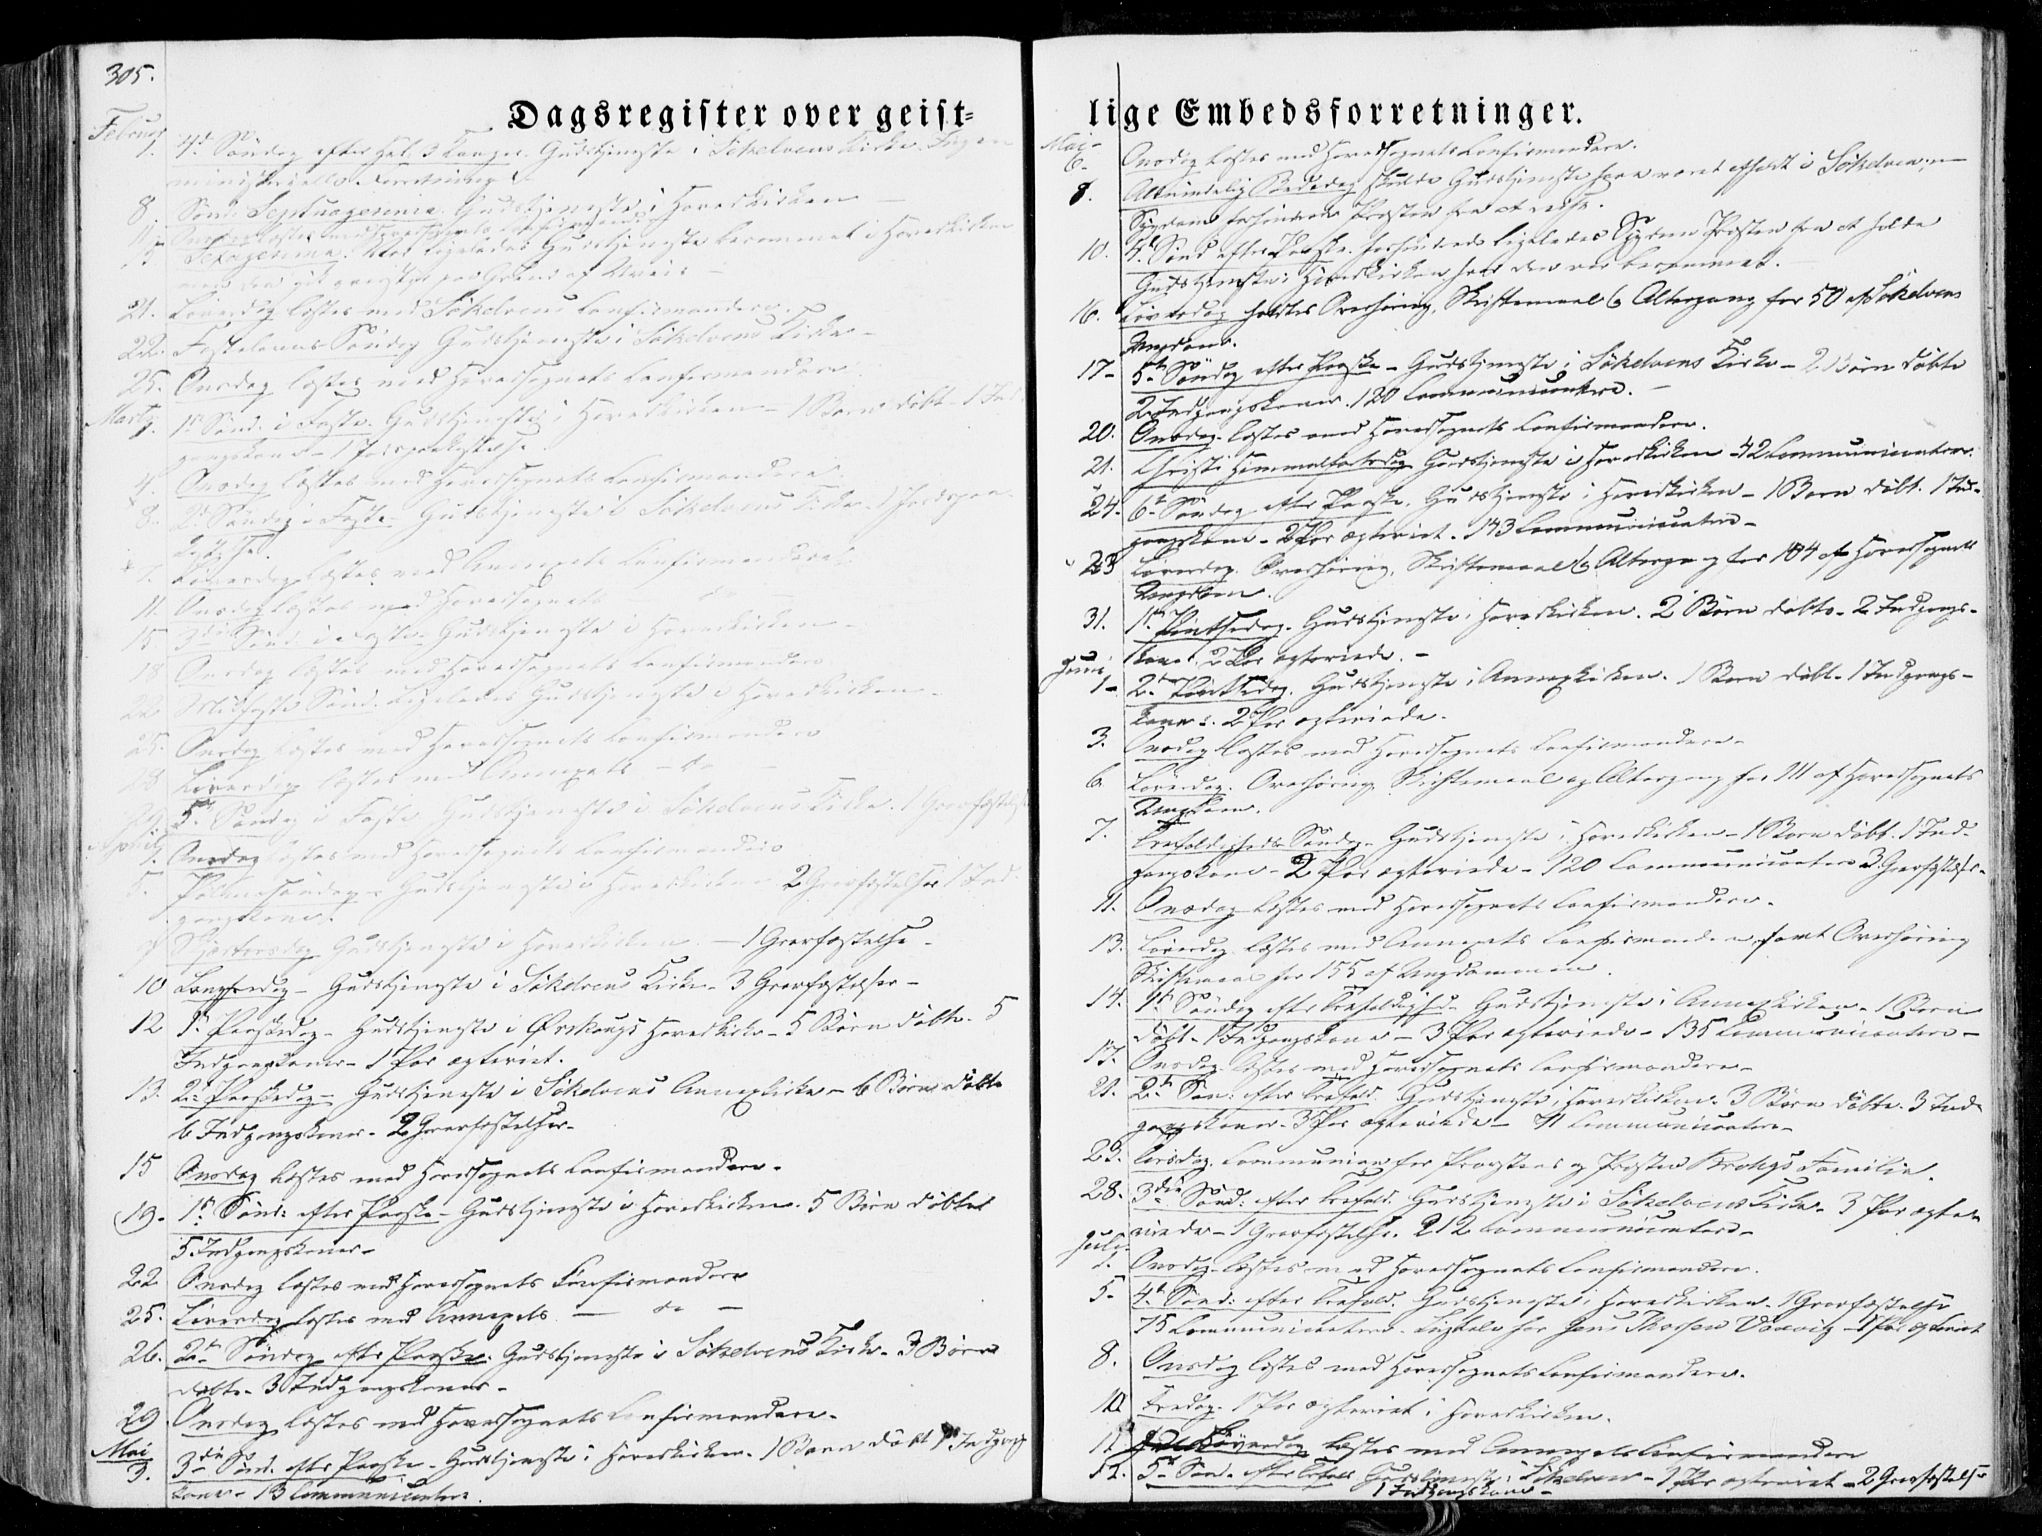 305.
Dagsregister over geist-
Februar
1. 4d Søndag efter Hel. 3 Konger. Gudstjeneste i Søkelvens Kirke. Ingen
ministerielle Forretninger
8. Sønd. Septuagesima. Gudstjeneste i Hovedkirken
11. Onsdag læstes med Hovedsognets Confirmander
15 Sexagesima. Gudstjeneste berammet i Hovedkirken
21. Løverdag læstes med Søkelvens Confirmandere.
22. Fastelavns Søndag Gudstjeneste i Søkelvens Kirke -
25. Onsdag læstes med Hovedsognets Confirmandere
Martz
1. 1ste Sønd: i Faste. Gudstjeneste i Hovedkirken - 1 Barn døbt - 1 Ind-
gangskone - 1
4. Onsdag læstes med Hovedsognets Confirmandere
8. 2d Søndag i Faste. Gudstjeneste i Søkelvens Kirke.
7. Løverdag læstes med Annexets Confirmandere
11. Onsdag læstes med Hovedsognets — do —
15 3die Sønd i Faste. Gudstjeneste i Hovedkirken -
18 Onsdag læstes med Hovedsognets Confirmandere
22 Midfaste Sønd. Ligeledes Gudstjeneste i Hovedkirken -
25. Onsdag læstes med Hovedsognets Confirmandere
28 Løverdag læstes med Annexets - do -
29 5te Søndag i Faste Gudstjeneste i Søkelvens Kirke. 1 Gravfæstelse
April
1. Onsdag læstes med Hovedsognets Confirmandere
5. Palmesøndag - Gudstjeneste i Hovedkirken 2 Gravfæstelser 1 Ind-
gangskone.
9 Skjærtorsdag Gudstjeneste i Hovedkirken - 1 Gravfæstelse -
10 Langfredag - Gudstjeneste i Søkelvens Kirke - 3 Gravfæstelser -
12 1ste Paaskedag - Gudstjeneste i Ørskougs Hovedkirke - 5 Børn døbte. 5
Indgangskoner - 1 Par ægteviet.
13. 2den Paaskedag - Gudstjeneste i Søkelvens Annexkirke - 6 Børn døbte
6 Indgangskoner - 2 Gravfæstelser -
15 Onsdag læstes med Hovedsognets Confirmandere -
19. 1ste Sønd: efter Paaske - Gudstjeneste i Hovedkirken. 5 Børn døbte
5 Indgangskoner -
22 Onsdag læstes med Hovedsognets Confirmandere
25. Løverdag læstes med Annexets — do —
26. 2den Søndag efter Paaske. Gudstjeneste i Søkelvens Kirke - 3 Børn
døbte - 3 Indgangskoner -
29. Onsdag læstes med Hovedsognets Confirmandere -
Mai
3. 3die Sønd. efter Paaske - Gudstjeneste i Hovedkirken - 1 Barn døbt 1 Indgangs
kone - 13 Communicantere.
lige Embedsforretninger.
Mai
6. Onsdag læstes med Hovedsognets Confirmandere.
8. Almindelig Bededag skulde Gudstjeneste have været afholdt i Søkelven, men
Sygdom forhindrede Præsten fra at reise.
10. 4d Sønd efter Paaske. forhindrede ligeledes Sygdom Præsten fra at holde
Gudstjeneste i Hovedkirken hvor den var berammet. -
16. Løverdag holdtes Overhøring, Skriftemaal & Altergang for 50 af Søkelvens
Ungdom.
17. 5te Søndag efter Paaske - Gudstjeneste i Søkelvens Kirke - 2 Børn døbte
2 Indgangskoner. 120 Communicantere. -
20. Onsdag læstes med Hovedsognets Confirmandere.
21. Christi Himmelfartsdag Gudstjeneste i Hovedkirken - 42 Communicantere.
24. 6te Søndag efter Paaske. Gudstjeneste i Hovedkirken - 1 Barn døbt. 1 Ind-
gangskone - 2 Par ægteviet. 143 Communicantere -
23 Løverdag. Overhøring, Skriftemaal & Altergang for 104 af Hovedsognets
Ungdom.
31. 1ste Pintsedag. Gudstjeneste i Hovedkirken. 2 Børn døbte. 2 Indgangs-
koner. 2 Par ægteviede. -
Juni
1 - 2den Pintsedag. Gudstjeneste i Annexkirken. 1 Barn døbt. 1 Indgangs-
kone. 2 Par ægteviede.
3. Onsdag læstes med Hovedsognets Confirmandere -
6 Løverdag. Overhøring Skriftemaal og Altergang for 111 af Hovedsognets
Ungdom.
7. Trefoldigheds Søndag. Gudstjeneste i Hovedkirken - 1 Barn døbt. 1 Ind-
gangskone - 2 Par ægteviede - 120 Communicantere 3 Gravfæstelser -
11. Onsdag læstes med Hovedsognets Confirmandere.
13. Løverdag læstes med Annexets Confirmandere samt Overhøring
Skriftemaal for 155 af Ungdommen.
14. 1ste Søndag efter Trefoldighed - Gudstjeneste i Annexkirken - 1 Barn
døbt - 1 Indgangskone - 3 Par ægteviede - 135 Communicantere -
17. Onsdag læstes med Hovedsognets Confirmandere -
21. 2den Søn: efter Trefold. Gudstjeneste i Hovedkirken. 3 Børn døbte. 3 Ind-
gangskoner. 3 Par ægteviede - 71 Communicantere -
25. Torsdag. Communion for Provstens og Præsten Krohgs Familie.
28. 3die Sønd: efter Trefold. Gudstjeneste i Søkelvens Kirke - 3 Par ægte-
viede - 1 Gravfæstelse. 212 Communicantere -
Juli
1. Onsdag læstes med Hovedsognets Confirmandere.
5. 4de Sønd: efter Trefold. Gudstjeneste i Hovedkirken. 1 Gravfæstelse
75 Communicantere. Ligtale for Jens 1 Par ægteviet
8. Onsdag læstes med Hovedsognets Confirmandere.
10. Fredag. 1 Par ægteviet i Hovedkirken.
11. Løverdag læstes med Annexets Confirmandere
12. 5te Sønd. efter Trefold Gudstjeneste i Søkelven - 1 Par ægteviet - 2 Gravfæstelser
1 Indgangskone -